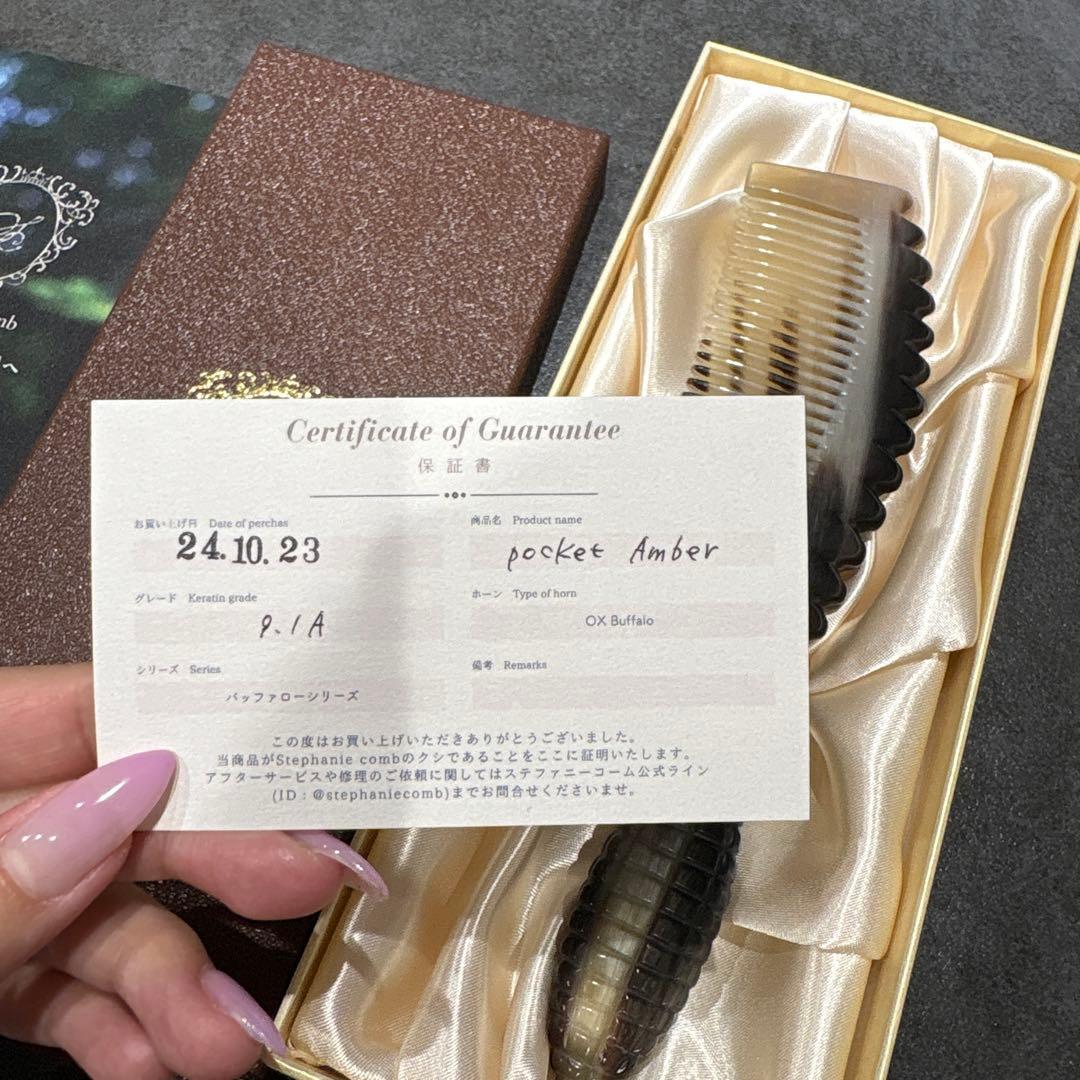 Certificate of Guarantee
保証書
お買い上げ日 Date of perchas
24.10.23
商品名 Product name
pocket Amber
グレード Keratin grade
9.1A
ホーン Type of horn
OX Buffalo
シリーズ Series
バッファローシリーズ
備考 Remarks
この度はお買い上げいただきありがとうございました。
当商品がStephanie combのクシであることをここに証明いたします。
アフターサービスや修理のご依頼に関してはステファニーコーム公式ライン
(ID：@stephaniecomb)までお問合せくださいませ。